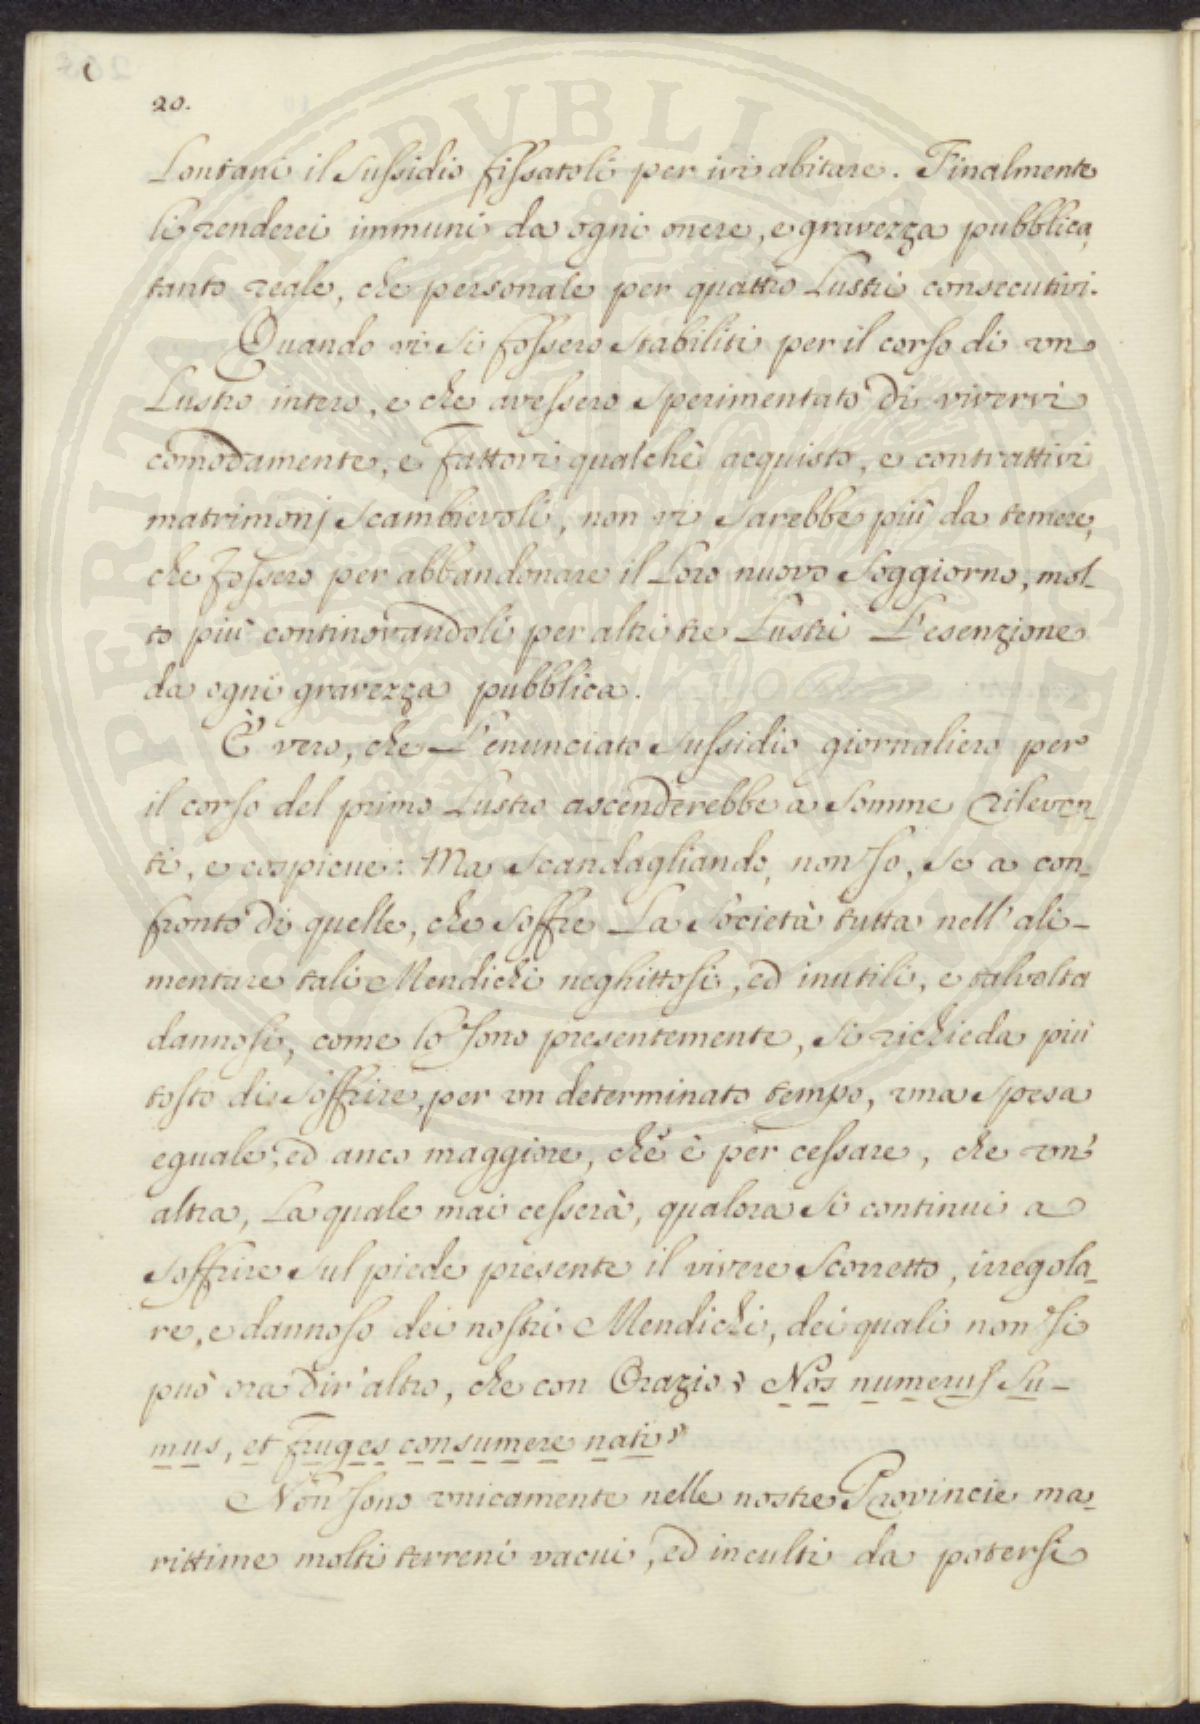 20.
Lontani il sussidio fissatoli per ivi abitare. Finalmente
li renderei immuni da ogni onere, e gravezza pubblica,
tanto reale, che personale per quattro Lustri consecutivi.
Quando vi si fossero stabiliti per il corso di vn
Lustro intero, e che avessero sperimentato di vivervi
comodamente, e fattovi qualchè acquisto, e contrattivi
matrimonj scambievoli, non vi sarebbe più da temere,
che fossero per abbandonare il Loro nuovo soggiorno, mol-
to più continovandoli per altri tre Lustri L'esenzione
da ogni gravezza pubblica.
È vero, che L'enunciato sussidio giornaliero per
il corso del primo Lustro ascenderebbe a somme rileven-
ti, e cospicue: Ma scandagliando, non so, se a con-
fronto di quelle, che soffre La Società tutta nell' ali-
mentare tali Mendichi neghittosi, ed inutili, e talvolta
dannosi, come lo sono presentemente, si richieda più
tosto di soffrire, per vn determinato tempo, vna spesa
eguale, ed anco maggiore, che è per cessare, che vn'
altra, La quale mai cesserà, qualora si continui a
soffrire sul piede presente il vivere scorretto, irregola-
re, e dannoso dei nostri Mendichi, dei quali non si
può ora dir' altro, che con Orazio, Nos numerus su-
mus, et fruges consumere nati,
Non sono vnicamente nelle nostre Provincie ma-
rittime molti terreni vacui, ed inculti da potersi
PERITATI PVBLICA